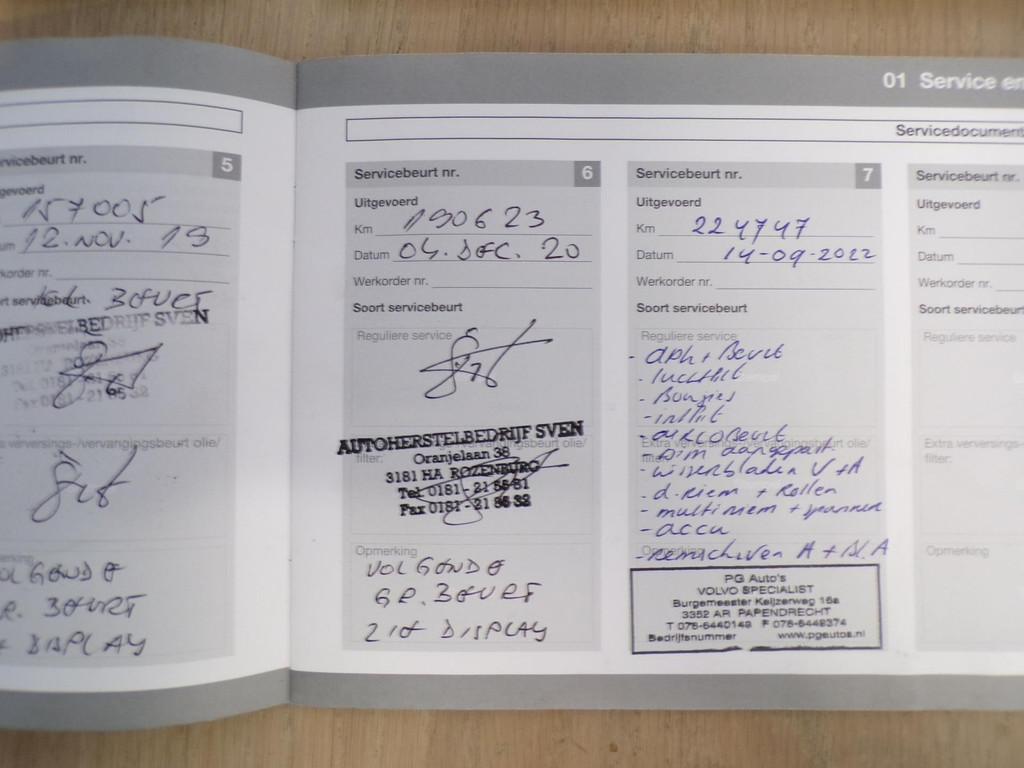 01 Service en
Servicedocument
Servicebeurt nr. 5
Uitgevoerd
157005
12. NOV. 19
Werkorder nr.
Soort servicebeurt
BEURT
AUTOHERSTELBEDRIJF SVEN
Fax 0181 - 21 86 32
verversings-/vervangingsbeurt olie/
VOLGENDE
GR. BEURT
DISPLAY
Servicebeurt nr. 6
Uitgevoerd
Km 190623
Datum 04. DEC. 20
Werkorder nr.
Soort servicebeurt
Reguliere service
AUTOHERSTELBEDRIJF SVEN
Oranjelaan 38
3181 HA ROZENBURG
Tel. 0181 - 21 86 81
Fax 0181 - 21 86 32
filter:
Opmerking
VOLGENDE
GR. BEURT
ZIE DISPLAY
Servicebeurt nr. 7
Uitgevoerd
Km 224747
Datum 14-09-2022
Werkorder nr.
Soort servicebeurt
Reguliere service
- aph + Beurt
- luchtfilt
- Bougies
- intfilt
- aircobeurt
- Sim aangepast
- wisserbladen V + A
- d.riem + Rollen
- multiriem + spanner
- accu
- remschijven A + Bl. A
PG Auto's
VOLVO SPECIALIST
Burgemeester Keijzerweg 16a
3352 AR PAPENDRECHT
T 078-6440149 F 078-6449374
Bedrijfsnummer www.pgautos.nl
Servicebeurt nr.
Uitgevoerd
Km
Datum
Werkorder nr.
Soort servicebeurt
Reguliere service
Extra verversings-
filter:
Opmerking